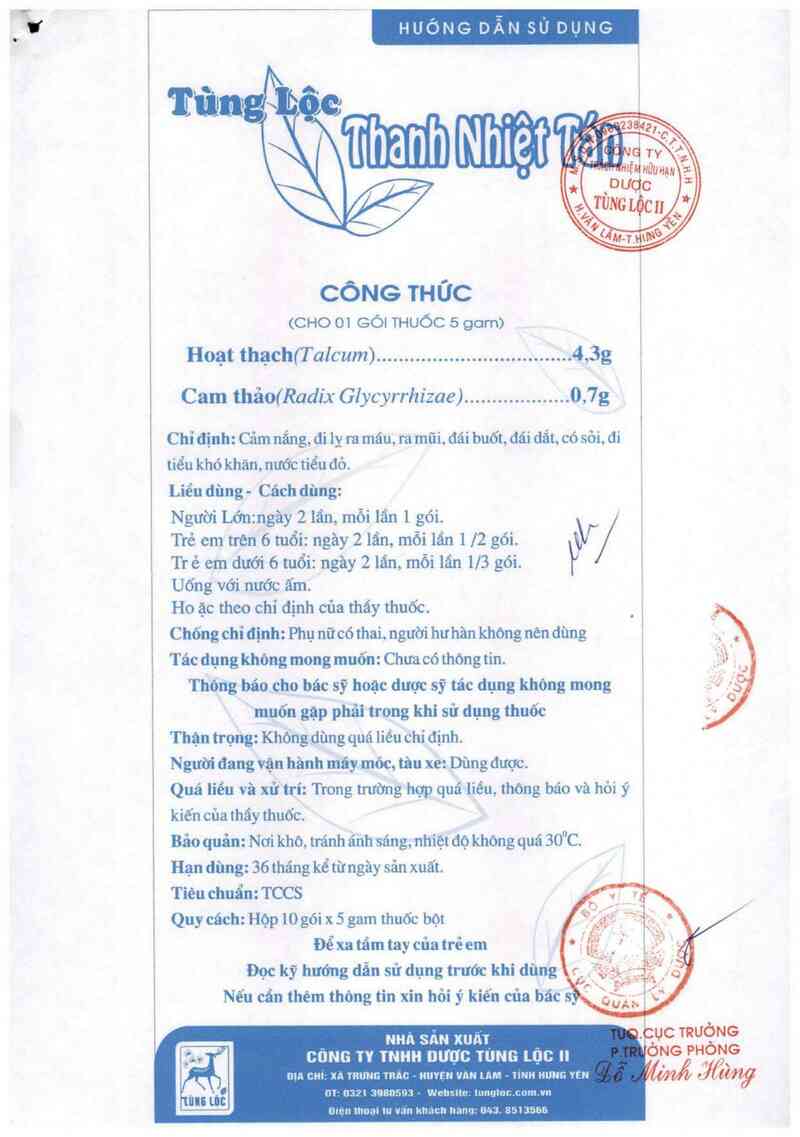 HƯỚNG DẪN SỬ DỤNG
Tùng Lộc
Thanh Nhiệt Tán
0900238421-C.T.T.N.H.H
CÔNG TY
TRÁCH NHIỆM HỮU HẠN
DƯỢC
TÙNG LỘC II
H.VĂN LÂM-T.HƯNG YÊN
CÔNG THỨC
(CHO 01 GÓI THUỐC 5 gam)
Hoạt thạch(Talcum)..................................4,3g
Cam thảo(Radix Glycyrrhizae)...................0,7g
Chỉ định: Cảm nắng, đi lỵ ra máu, ra mũi, đái buốt, đái dắt, có sỏi, đi
tiểu khó khăn, nước tiểu đỏ.
Liều dùng - Cách dùng:
Người Lớn:ngày 2 lần, mỗi lần 1 gói.
Trẻ em trên 6 tuổi: ngày 2 lần, mỗi lần 1 /2 gói.
Tr ẻ em dưới 6 tuổi: ngày 2 lần, mỗi lần 1/3 gói.
Uống với nước ấm.
Ho ặc theo chỉ định của thầy thuốc.
Chống chỉ định: Phụ nữ có thai, người hư hàn không nên dùng
Tác dụng không mong muốn: Chưa có thông tin.
Thông báo cho bác sỹ hoặc dược sỹ tác dụng không mong
muốn gặp phải trong khi sử dụng thuốc
Thận trọng: Không dùng quá liều chỉ định.
Người đang vận hành máy móc, tàu xe: Dùng được.
Quá liều và xử trí: Trong trường hợp quá liều, thông báo và hỏi ý
kiến của thầy thuốc.
Bảo quản: Nơi khô, tránh ánh sáng, nhiệt độ không quá 30°C.
Hạn dùng: 36 tháng kể từ ngày sản xuất.
Tiêu chuẩn: TCCS
Quy cách: Hộp 10 gói x 5 gam thuốc bột
Để xa tầm tay của trẻ em
Đọc kỹ hướng dẫn sử dụng trước khi dùng
Nếu cần thêm thông tin xin hỏi ý kiến của bác sỹ
DƯỢC
BỘ Y TẾ
CỤC QUẢN LÝ DƯỢC
NHÀ SẢN XUẤT
CÔNG TY TNHH DƯỢC TÙNG LỘC II
ĐỊA CHỈ: XÃ TRƯNG TRẮC - HUYỆN VĂN LÂM - TỈNH HƯNG YÊN
ĐT: 0321 3980593 - Website: tungloc.com.vn
Điện thoại tư vấn khách hàng: 043. 8513566
TÙNG LỘC
TUQ.CỤC TRƯỞNG
P.TRƯỞNG PHÒNG
Đỗ Minh Hùng